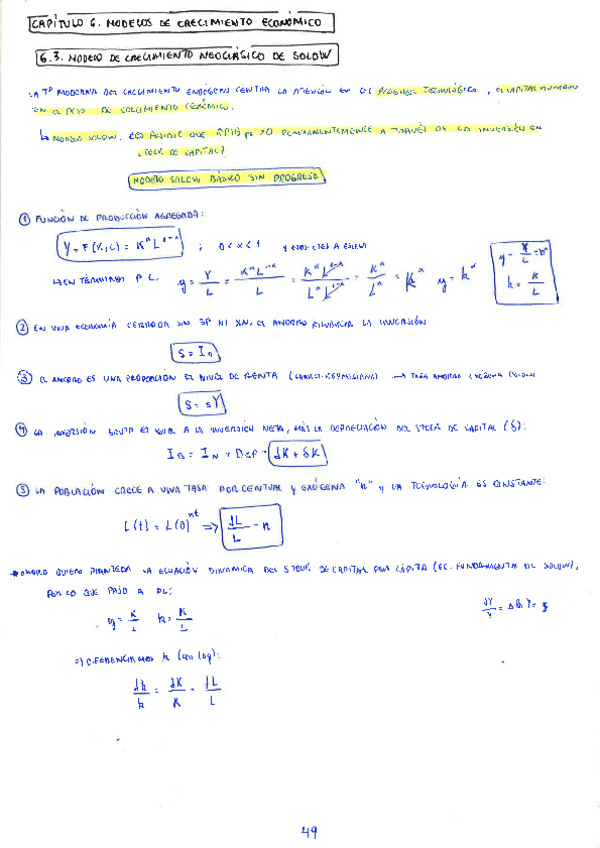 CAPÍTULO 6. MODELOS DE CRECIMIENTO ECONÓMICO
6.3. MODELO DE CRECIMIENTO NEOCLÁSICO DE SOLOW
LA Tª MODERNA DEL CRECIMIENTO ENDÓGENO CENTRA LA ATENCIÓN EN EL PROGRESO TECNOLÓGICO, EL CAPITAL HUMANO
EN EL DE CRECIMIENTO ECONÓMICO.
↳ MODELO SOLOW. ¿ES POSIBLE QUE PERMANENTEMENTE A TRAVÉS DE LA INVERSIÓN EN
STOCK DE CAPITAL?
MODELO SOLOW BÁSICO SIN PROGRESO
① FUNCIÓN DE PRODUCCIÓN AGREGADA:
Y = F(K,L) = K^α L^1-α ; 0 < α < 1 Y
→ EN TÉRMINOS P.L. y = Y/L = K^α L^1-α / L = K^α L^1-α / L^α L^1-α = K^α / L^α = k^α y = k^α
y = Y/L = k^α
k = K/L
② EN UNA ECONOMÍA CERRADA SIN SP NI XN, EL AHORRO LA INVERSIÓN
S = I_B
③ EL AHORRO ES UNA PROPORCIÓN EL NIVEL DE RENTA → TASA AHORRO EXÓGENA
S = sY
④ LA INVERSIÓN BRUTA ES IGUAL A LA INVERSIÓN NETA, MÁS LA DEPRECIACIÓN DEL STOCK DE CAPITAL (δ):
I_B = I_N + DEP = dK + δK
⑤ LA POBLACIÓN CRECE A UNA TASA PORCENTUAL Y EXÓGENA "n" Y LA TECNOLOGÍA ES CONSTANTE:
L(t) = L(0)^nt ⇒ dL/L = n
AHORA QUIERO PLANTEAR LA ECUACIÓN DINÁMICA DEL STOCK DE CAPITAL PER CÁPITA (EC. FUNDAMENTAL DE SOLOW),
POR LO QUE PASO A PL:
y = K/L k = K/L
DIFERENCIAMOS k (con log):
dk/k = dK/K - dL/L
49